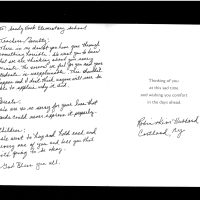 To: Sandy Hook Elementary School
Teachers/Faculty:
There is no doubt you have gone through
something horrible. So want you to know
that we are thinking about you every
minute. The sorrow we feel for you and your
students is inexplicable. This shouldn't
happen and I don't think anyone will ever be
able to explain why it did.
Parents:
We are so so sorry for your loss that
words could never express it properly.
Children:
We want to hug and hold each and
every one of you and tell you that
it's going to be okay.
God Bless you all.
Thinking of you
at this sad time
and wishing you comfort
in the days ahead.
Cortland, NY